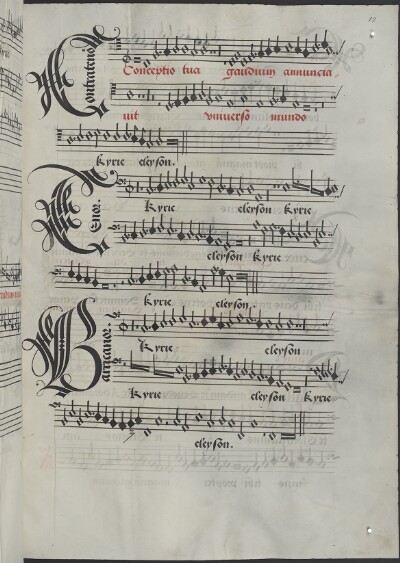 Contrateno[r]
Conceptio tua gaudium annuncia
uit vniuerso mundo
Kyrie eleyson.
Tenor.
Kyrie eleyson Kyrie
eleyson Kyrie
Kyrie eleyson.
Barricanor.
Kyrie eleyson
Kyrie eleyson Kyrie
eleyson.